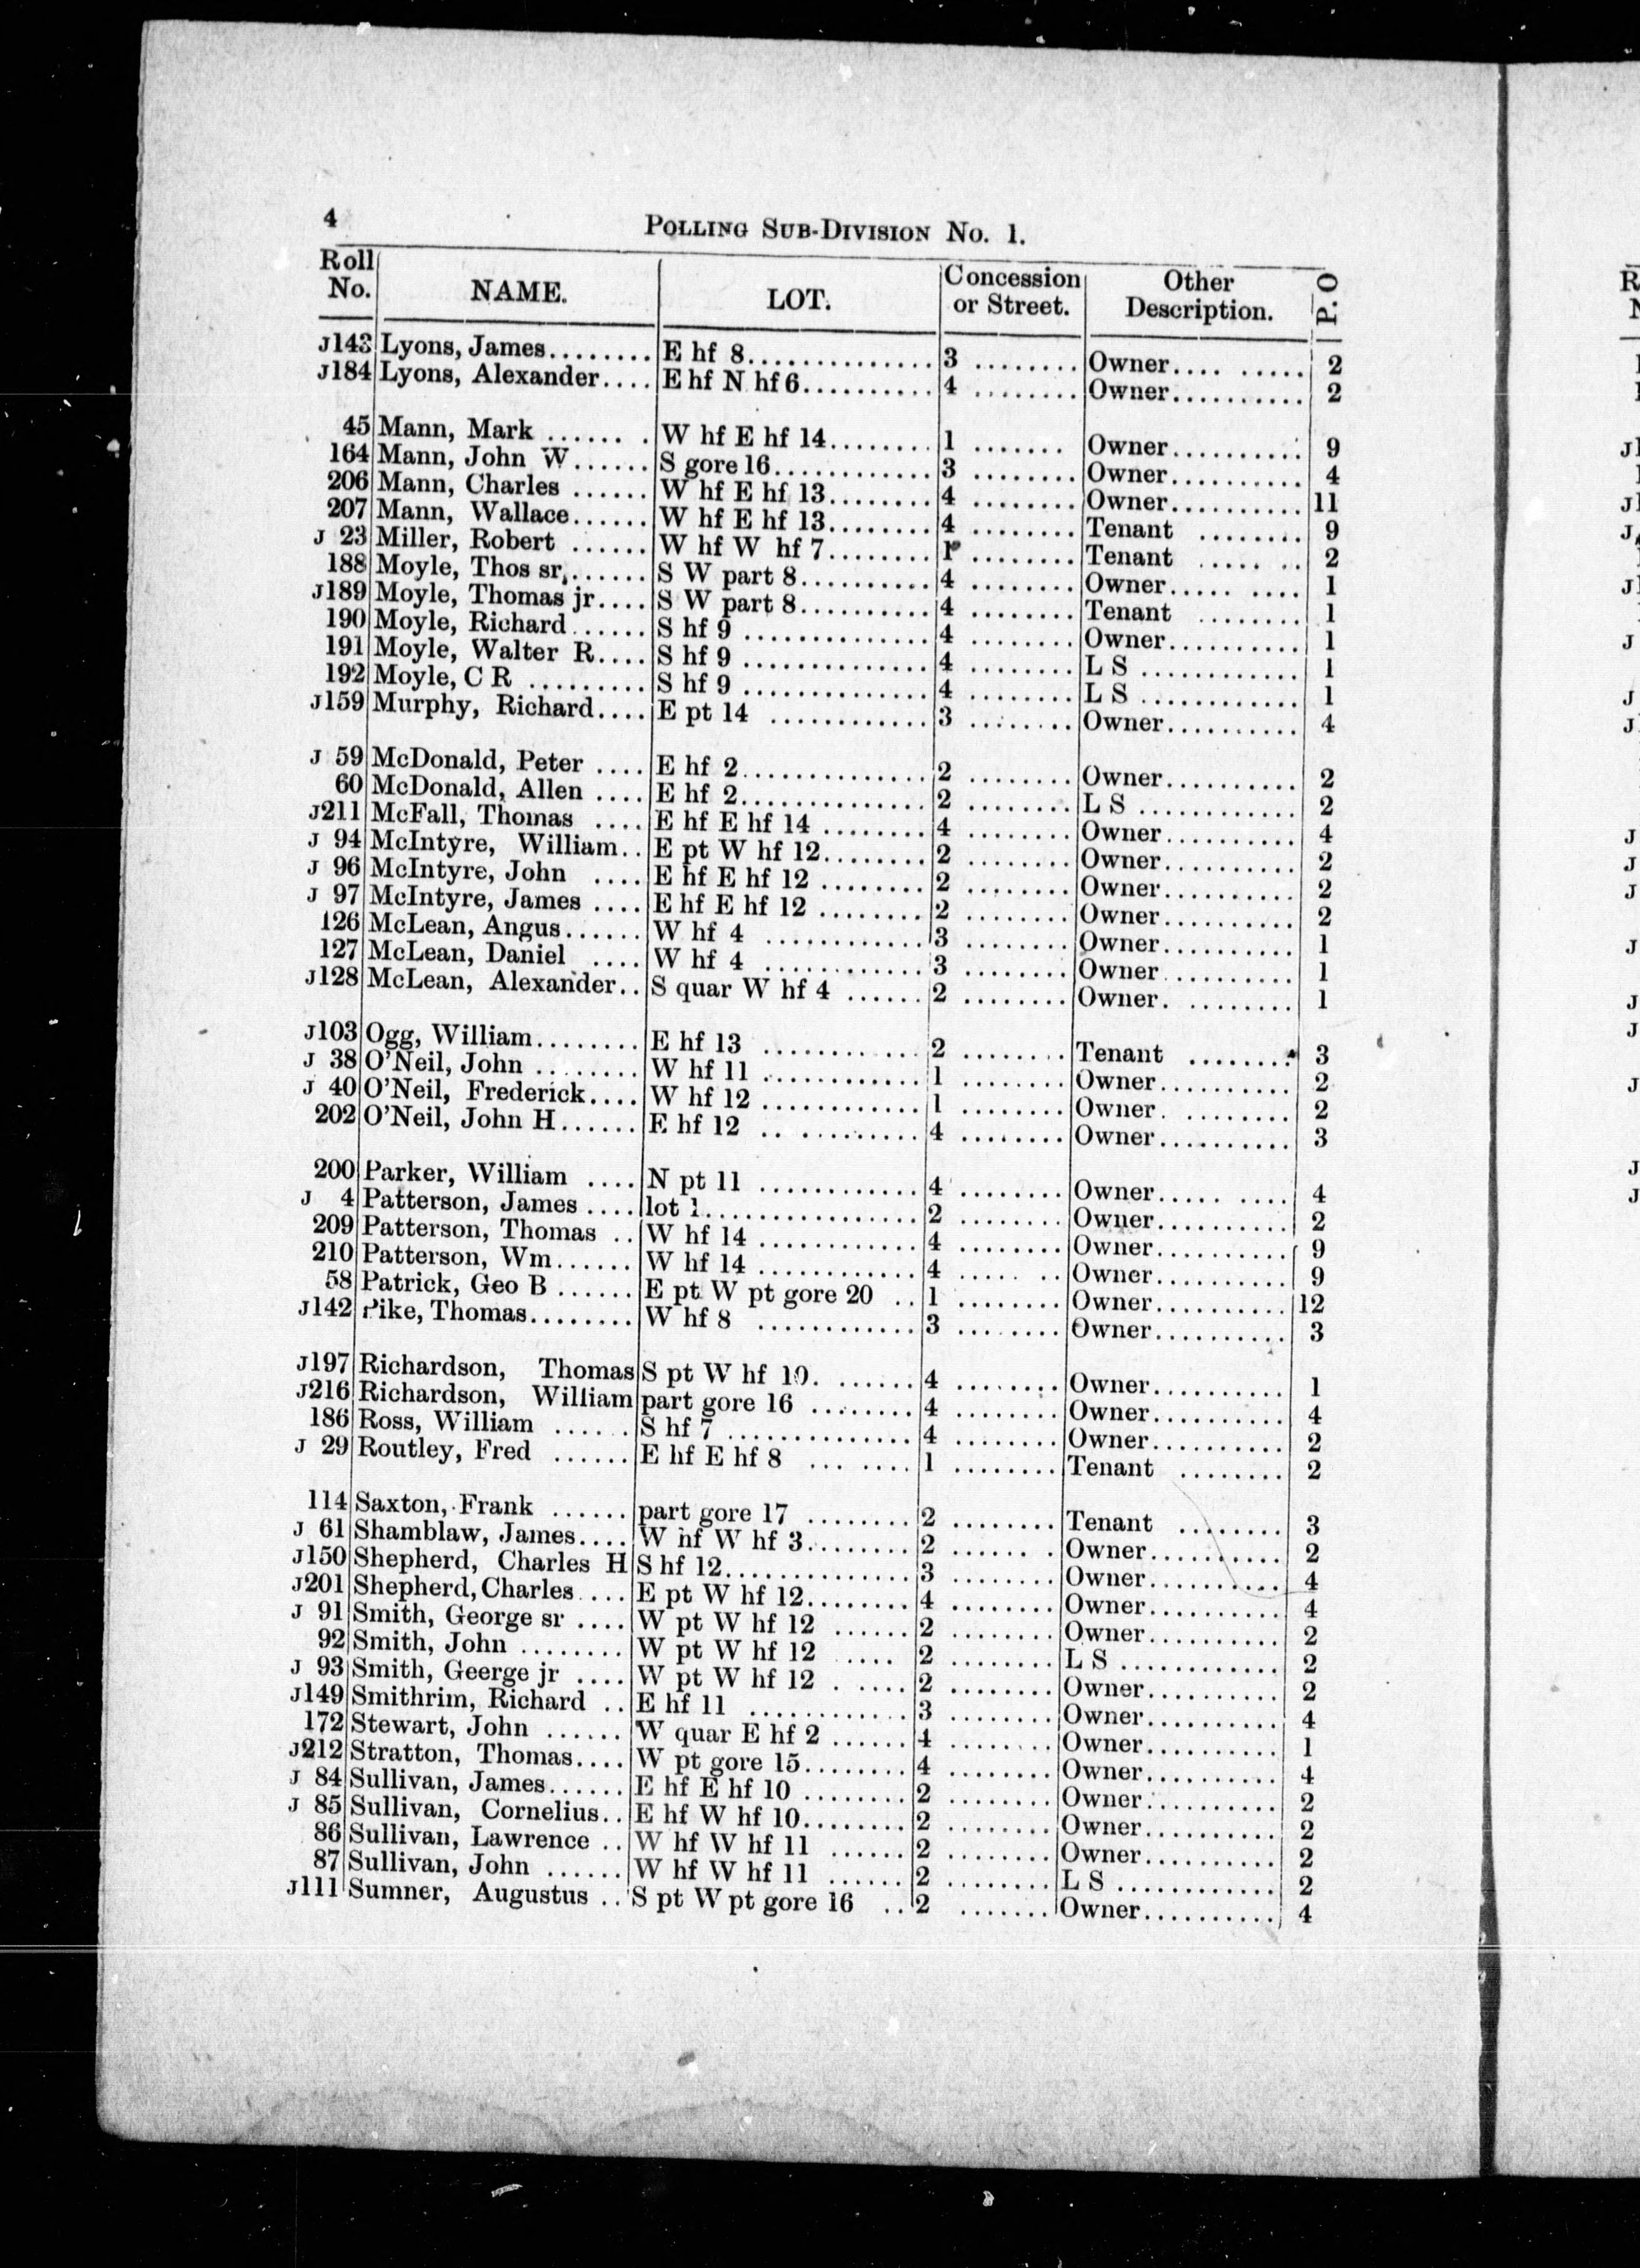 4 POLLING SUB-DIVISION NO. 1.
Roll No. NAME. LOT. Concession or Street. Other Description. P. O
J143 Lyons, James........ E hf 8.............. 3 ........ Owner.... ..... 2
J184 Lyons, Alexander.... E hf N hf 6.......... 4 ........ Owner.......... 2
45 Mann, Mark ...... . W hf E hf 14........ 1 ....... Owner.......... 9
164 Mann, John W...... S gore 16............ 3 ........ Owner.......... 4
206 Mann, Charles ...... W hf E hf 13........ 4 ........ Owner.......... 11
207 Mann, Wallace...... W hf E hf 13........ 4 ........ Tenant ........ 9
J 23 Miller, Robert ...... W hf W hf 7........ 1 ........ Tenant ..... .. 2
188 Moyle, Thos sr....... S W part 8.......... 4 ........ Owner..... .... 1
J189 Moyle, Thomas jr.... S W part 8.......... 4 ........ Tenant ........ 1
190 Moyle, Richard...... S hf 9 .............. 4 ........ Owner.......... 1
191 Moyle, Walter R.... S hf 9 .............. 4 ........ L S ............ 1
192 Moyle, C R ......... S hf 9 .............. 4 ........ L S ............ 1
J159 Murphy, Richard.... E pt 14 ............ 3 ........ Owner.......... 4
J 59 McDonald, Peter .... E hf 2.............. 2 ........ Owner.......... 2
60 McDonald, Allen .... E hf 2.............. 2 ........ L S ............ 2
J211 McFall, Thomas .... E hf E hf 14 ........ 4 ........ Owner.......... 4
J 94 McIntyre, William.. E pt W hf 12........ 2 ........ Owner.......... 2
J 96 McIntyre, John .... E hf E hf 12 ........ 2 ........ Owner.......... 2
J 97 McIntyre, James .... E hf E hf 12 ........ 2 ........ Owner.......... 2
126 McLean, Angus...... W hf 4 ............ 3 ........ Owner.......... 1
127 McLean, Daniel .... W hf 4 ............ 3 ........ Owner.......... 1
J128 McLean, Alexander.. S quar W hf 4 ...... 2 ........ Owner. ........ 1
J103 Ogg, William........ E hf 13 ............ 2 ........ Tenant ........ 3
J 38 O'Neil, John ........ W hf 11 ............ 1 ........ Owner.......... 2
J 40 O'Neil, Frederick.... W hf 12 ............ 1 ........ Owner. ........ 2
202 O'Neil, John H...... E hf 12 .. ......... 4 ........ Owner.......... 3
200 Parker, William .... N pt 11 ............ 4 ........ Owner..... .... 4
J 4 Patterson, James .... lot 1................ 2 ........ Owner.......... 2
209 Patterson, Thomas .. W hf 14 ............ 4 ........ Owner.......... 9
210 Patterson, Wm...... W hf 14 ............ 4 ..... .. Owner.......... 9
58 Patrick, Geo B ...... E pt W pt gore 20 .. 1 ........ Owner.......... 12
J142 Pike, Thomas........ W hf 8 ............ 3 ........ Owner.......... 3
J197 Richardson, Thomas S pt W hf 10. ...... 4 ........ Owner.......... 1
J216 Richardson, William part gore 16 ........ 4 ........ Owner.......... 4
186 Ross, William ...... S hf 7 .............. 4 ........ Owner.......... 2
J 29 Routley, Fred ...... E hf E hf 8 ... .... 1 ........ Tenant ........ 2
114 Saxton, Frank ...... part gore 17 ........ 2 ........ Tenant ........ 3
J 61 Shamblaw, James.... W hf W hf 3........ 2 ...... . Owner.......... 2
J150 Shepherd, Charles H S hf 12.............. 3 ........ Owner.......... 4
J201 Shepherd, Charles.... E pt W hf 12........ 4 ........ Owner.......... 4
J 91 Smith, George sr .... W pt W hf 12 ...... 2 ........ Owner.......... 2
92 Smith, John ........ W pt W hf 12 .... 2 ........ L S ............ 2
J 93 Smith, Geerge jr .... W pt W hf 12 . .... 2 ........ Owner.......... 2
J149 Smithrim, Richard .. E hf 11 ............ 3 ........ Owner.......... 4
172 Stewart, John ...... W quar E hf 2 ...... 4 ........ Owner.......... 1
J212 Stratton, Thomas.... W pt gore 15........ 4 ........ Owner.......... 4
J 84 Sullivan, James...... E hf E hf 10 ........ 2 ........ Owner.......... 2
J 85 Sullivan, Cornelius.. E hf W hf 10........ 2 ........ Owner.......... 2
86 Sullivan, Lawrence .. W hf W hf 11 ...... 2 ........ Owner.......... 2
87 Sullivan, John ...... W hf W hf 11 ...... 2 ........ L S ............ 2
J111 Sumner, Augustus .. S pt W pt gore 16 .. 2 ....... Owner.......... 4